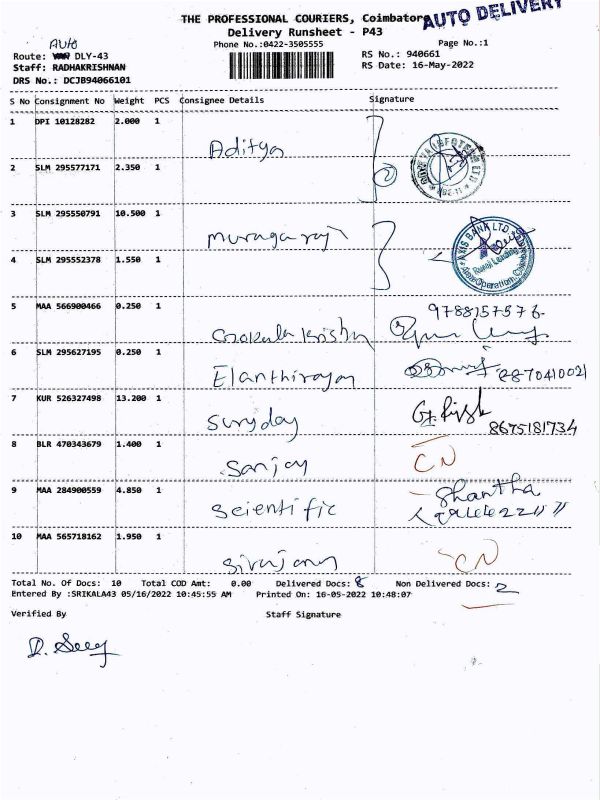 THE PROFESSIONAL COURIERS, Coimbatore
AUTO DELIVERY
Delivery Runsheet - P43
Phone No.:0422-3505555
Page No.:1
AUTO
Route: DLY-43
RS No.: 940661
Staff: RADHAKRISHNAN
RS Date: 16-May-2022
DRS No.: DCJB94066101
S No Consignment No Weight PCS Consignee Details Signature
1 DPI 10128282 2.000 1
Aditya
2 SLM 295577171 2.350 1
2
3 SLM 295550791 10.500 1
Murugaraj
AXIS BANK LTD.
Rural Lending
4 SLM 295552378 1.550 1
5 MAA 566900466 0.250 1
9788157576
Gokula Krishn
6 SLM 295627195 0.250 1
Elanthirayan 8870410021
7 KUR 526327498 13.200 1
Suryday
8675181734
8 BLR 470343679 1.400 1
Sanjay CN
9 MAA 284900559 4.850 1
Shantha
Scientific
10 MAA 565718162 1.950 1
CN
Total No. Of Docs: 10 Total COD Amt: 0.00 Delivered Docs: 8 Non Delivered Docs: 2
Entered By :SRIKALA43 05/16/2022 10:45:55 AM Printed On: 16-05-2022 10:48:07
Verified By Staff Signature